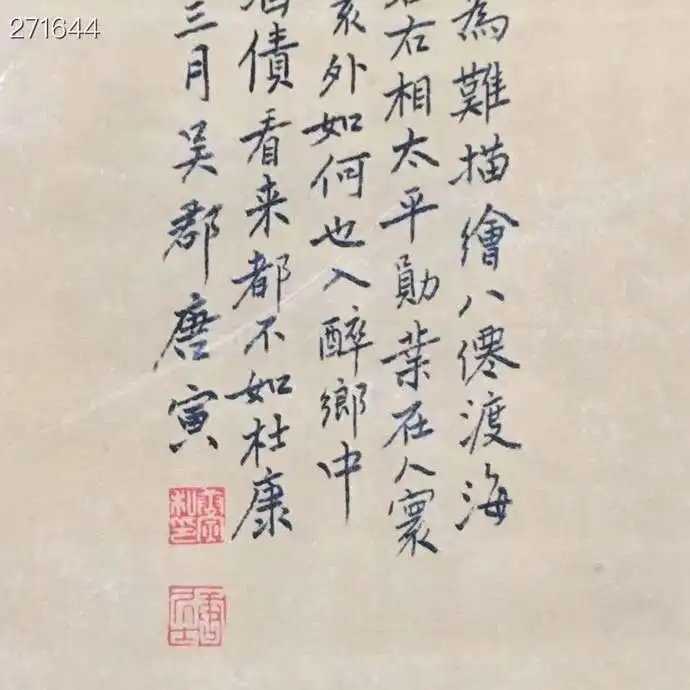 271644
為難描繪八僊渡海
右相太平勛業在人寰
外如何也入醉鄉中
債看来都不如杜康
三月吳郡唐寅
唐寅私印